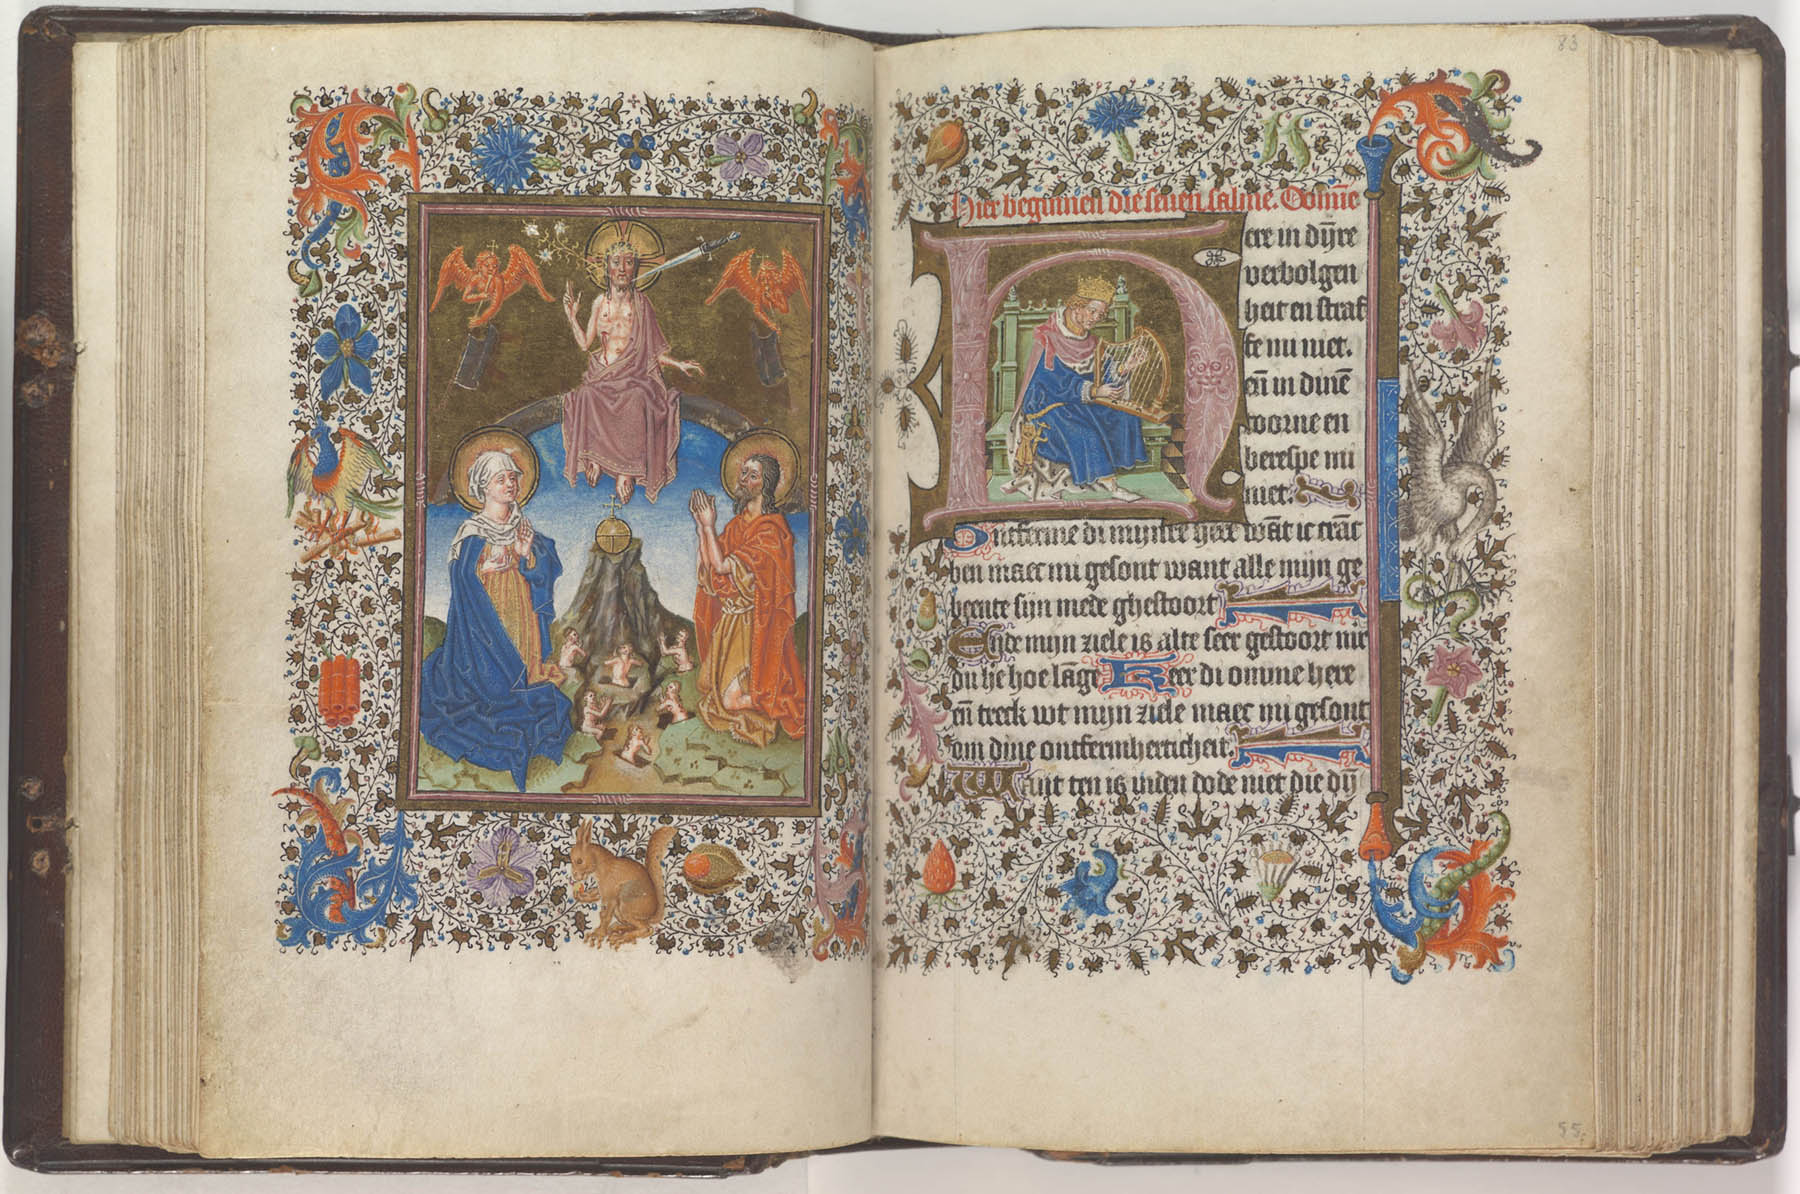 83
Hier beginnen die seuen salme. Dom̄e
ere in dijre
verbolgen
heit en straf
fe mi niet.
en̄ in dinē
toorne en
berespe mi
niet.
Ontferme di mijnre here wāt ic crāc
ben maec mi gesont want alle mijn ge
beente sijn mede ghestoort
Ende mijn ziele is alte seer gestoort
du he hoe lāge Keer di omme here
en̄ treck wt mijn ziele maec mi gesont
om dine ontfermherticheit.
Wuit ten is inden dode niet die dij
55